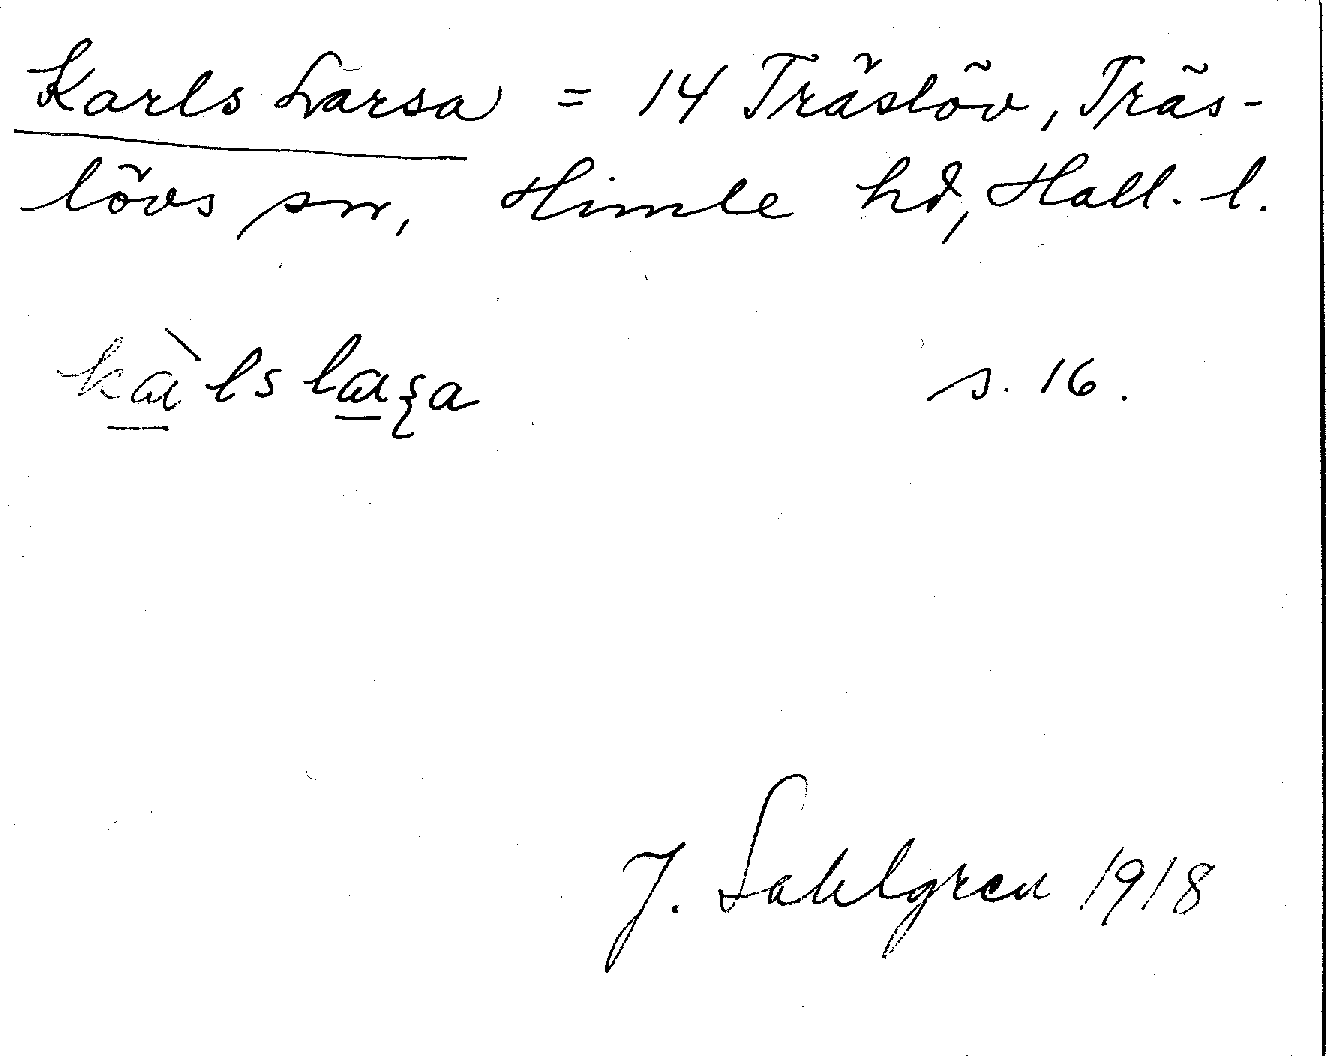 Karls Larsa = 14 Träslöv, Träs-
lövs sn, Himle hd, Hall. l.
kɑ̠̀ls lɑ̠ʂa s. 16.
J. Sahlgren 1918